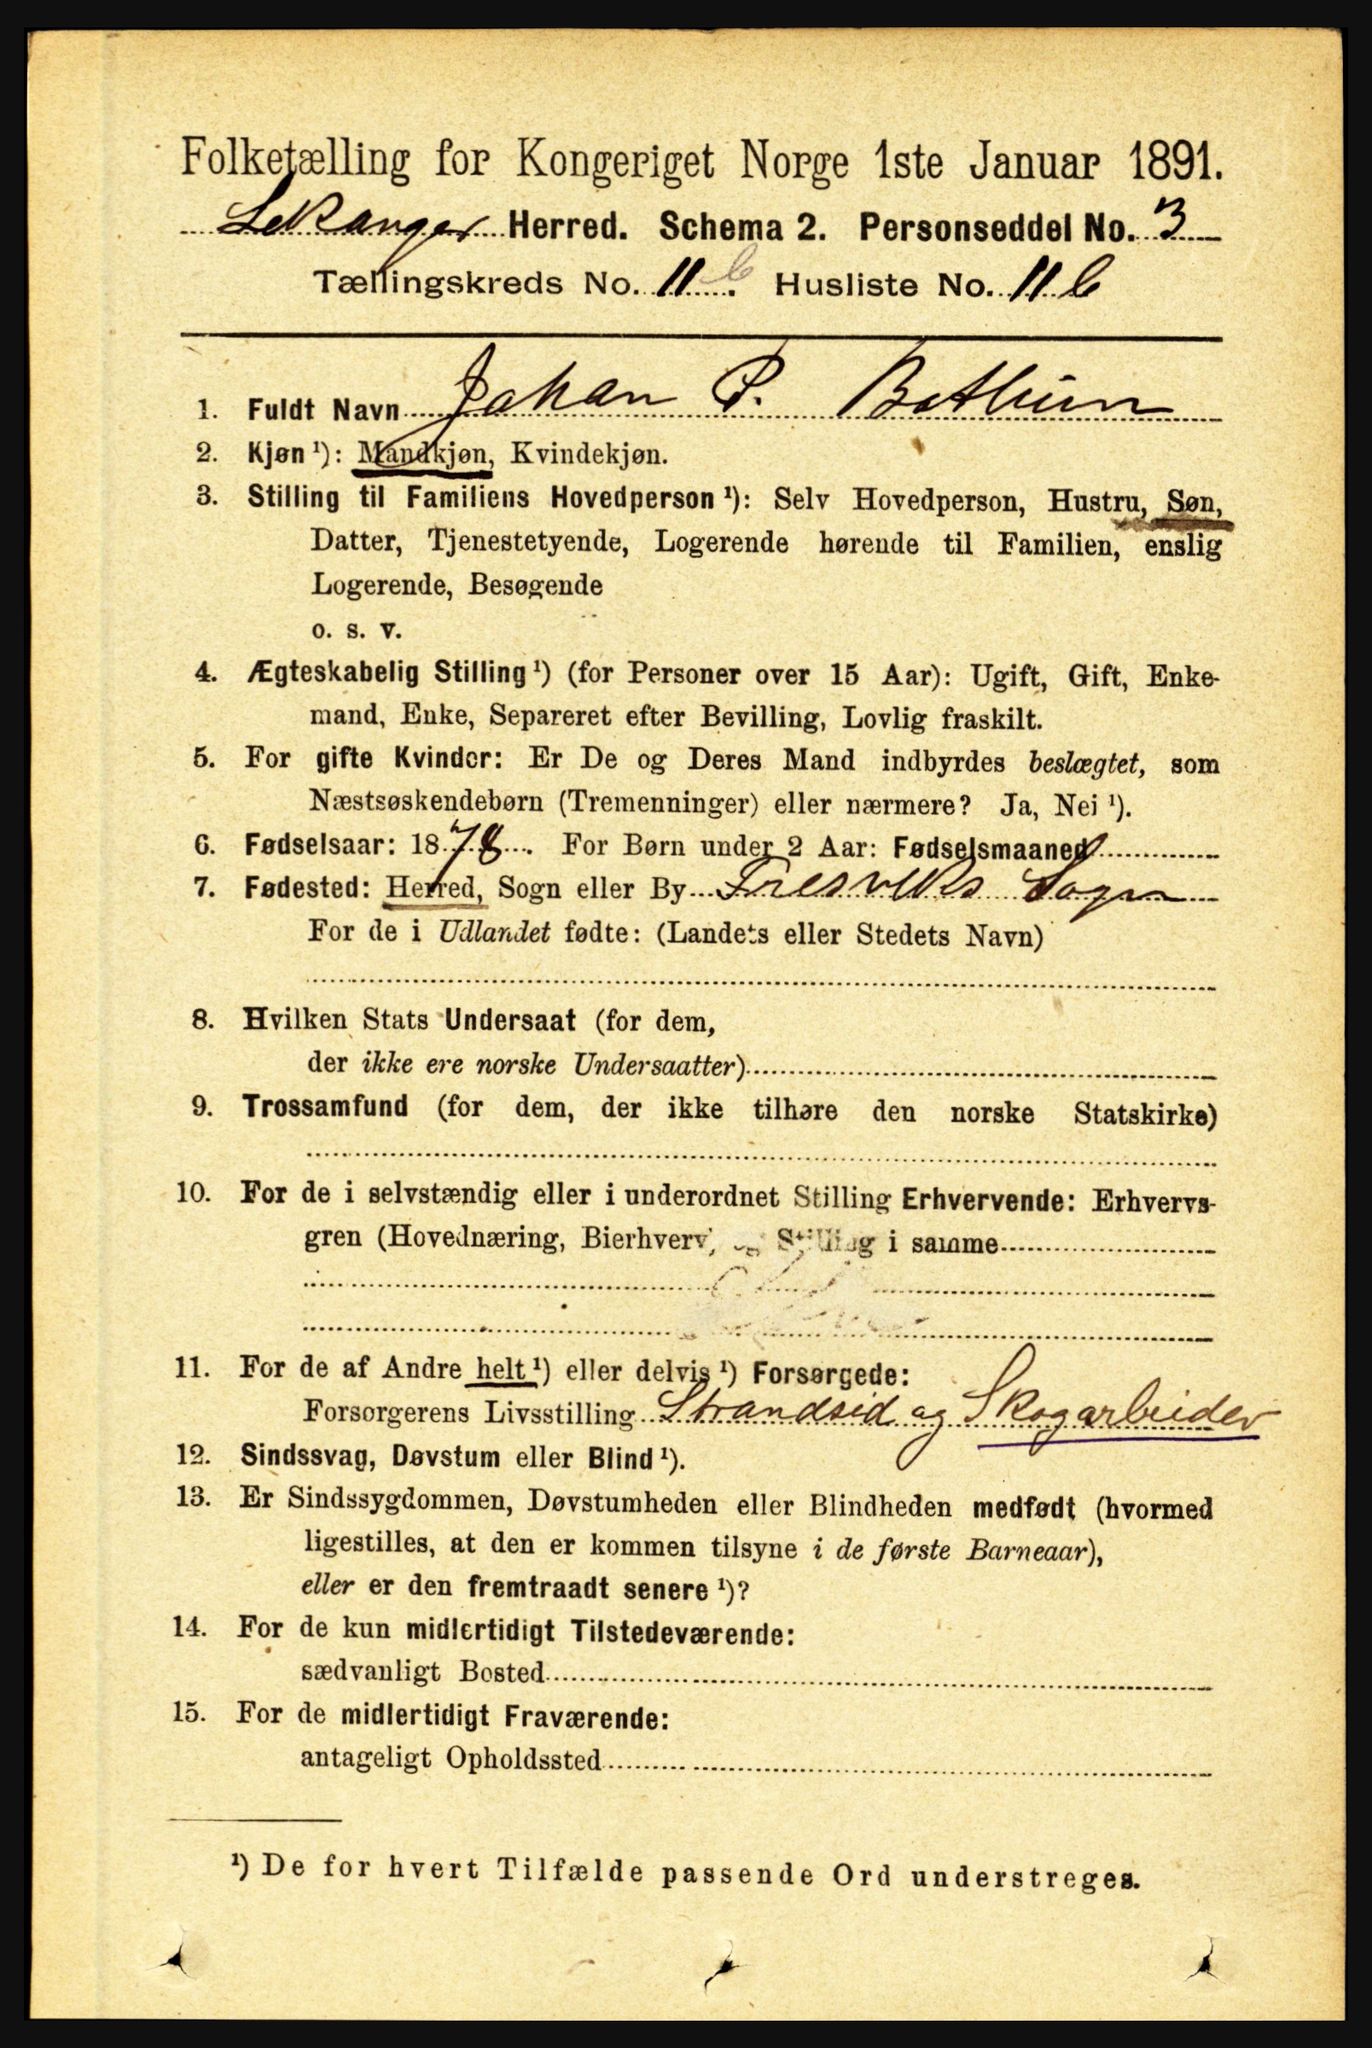 Folketælling for Kongeriget Norge 1ste Januar 1891.
Lekanger Herred. Schema 2. Personseddel No. 3
Tællingskreds No. 11 b. Husliste No. 11 b
1. Fuldt Navn Johan P. Bothun
2. Kjøn ¹): Mandkjøn, Kvindekjøn.
3. Stilling til Familiens Hovedperson ¹): Selv Hovedperson, Hustru, Søn,
Datter, Tjenestetyende, Logerende hørende til Familien, enslig
Logerende, Besøgende
o. s. v.
4. Ægteskabelig Stilling ¹) (for Personer over 15 Aar): Ugift, Gift, Enke-
mand, Enke, Separeret efter Bevilling, Lovlig fraskilt.
5. For gifte Kvinder: Er De og Deres Mand indbyrdes beslægtet, som
Næstsøskendebørn (Tremenninger) eller nærmere? Ja, Nei ¹).
6. Fødselsaar: 1878. For Børn under 2 Aar: Fødselsmaaned
7. Fødested: Herred, Sogn eller By Fresviks Sogn
For de i Udlandet fødte: (Landets eller Stedets Navn)
8. Hvilken Stats Undersaat (for dem,
der ikke ere norske Undersaatter)
9. Trossamfund (for dem, der ikke tilhøre den norske Statskirke)
10. For de i selvstændig eller i underordnet Stilling Erhvervende: Erhvervs-
gren (Hovednæring, Bierhverv) og Stilling i samme
11. For de af Andre helt ¹) eller delvis ¹) Forsørgede:
Forsørgerens Livsstilling Strandsid og Skogarbeider
12. Sindssvag, Døvstum eller Blind ¹).
13. Er Sindssygdommen, Døvstumheden eller Blindheden medfødt (hvormed
ligestilles, at den er kommen tilsyne i de første Barneaar),
eller er den fremtraadt senere ¹)?
14. For de kun midlertidigt Tilstedeværende:
sædvanligt Bosted
15. For de midlertidigt Fraværende:
antageligt Opholdssted
¹) De for hvert Tilfælde passende Ord understreges.